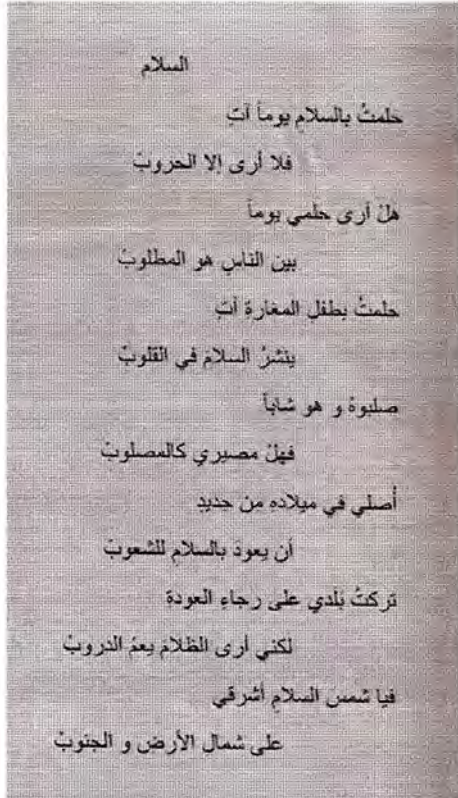 السلام
حلمتُ بالسلامِ يوماً آتِ
فلا أرى إلا الحروبْ
هلْ أرى حلمي يوماً
بين الناسِ هو المطلوبْ
حلمتُ بطفلِ المغارةِ آتِ
ينشرُ السلامَ في القلوبْ
صلبوهُ و هو شاباً
فهلْ مصيري كالمصلوبْ
أُصلي في ميلاده من جديدِ
أن يعودَ بالسلامِ للشعوبْ
تركتُ بَلدي على رجاءِ العودةِ
لكني أرى الظلامَ يعمُ الدروبْ
فيا شمسَ السلامِ أشرقي
على شمالِ الأرضِ و الجنوبْ